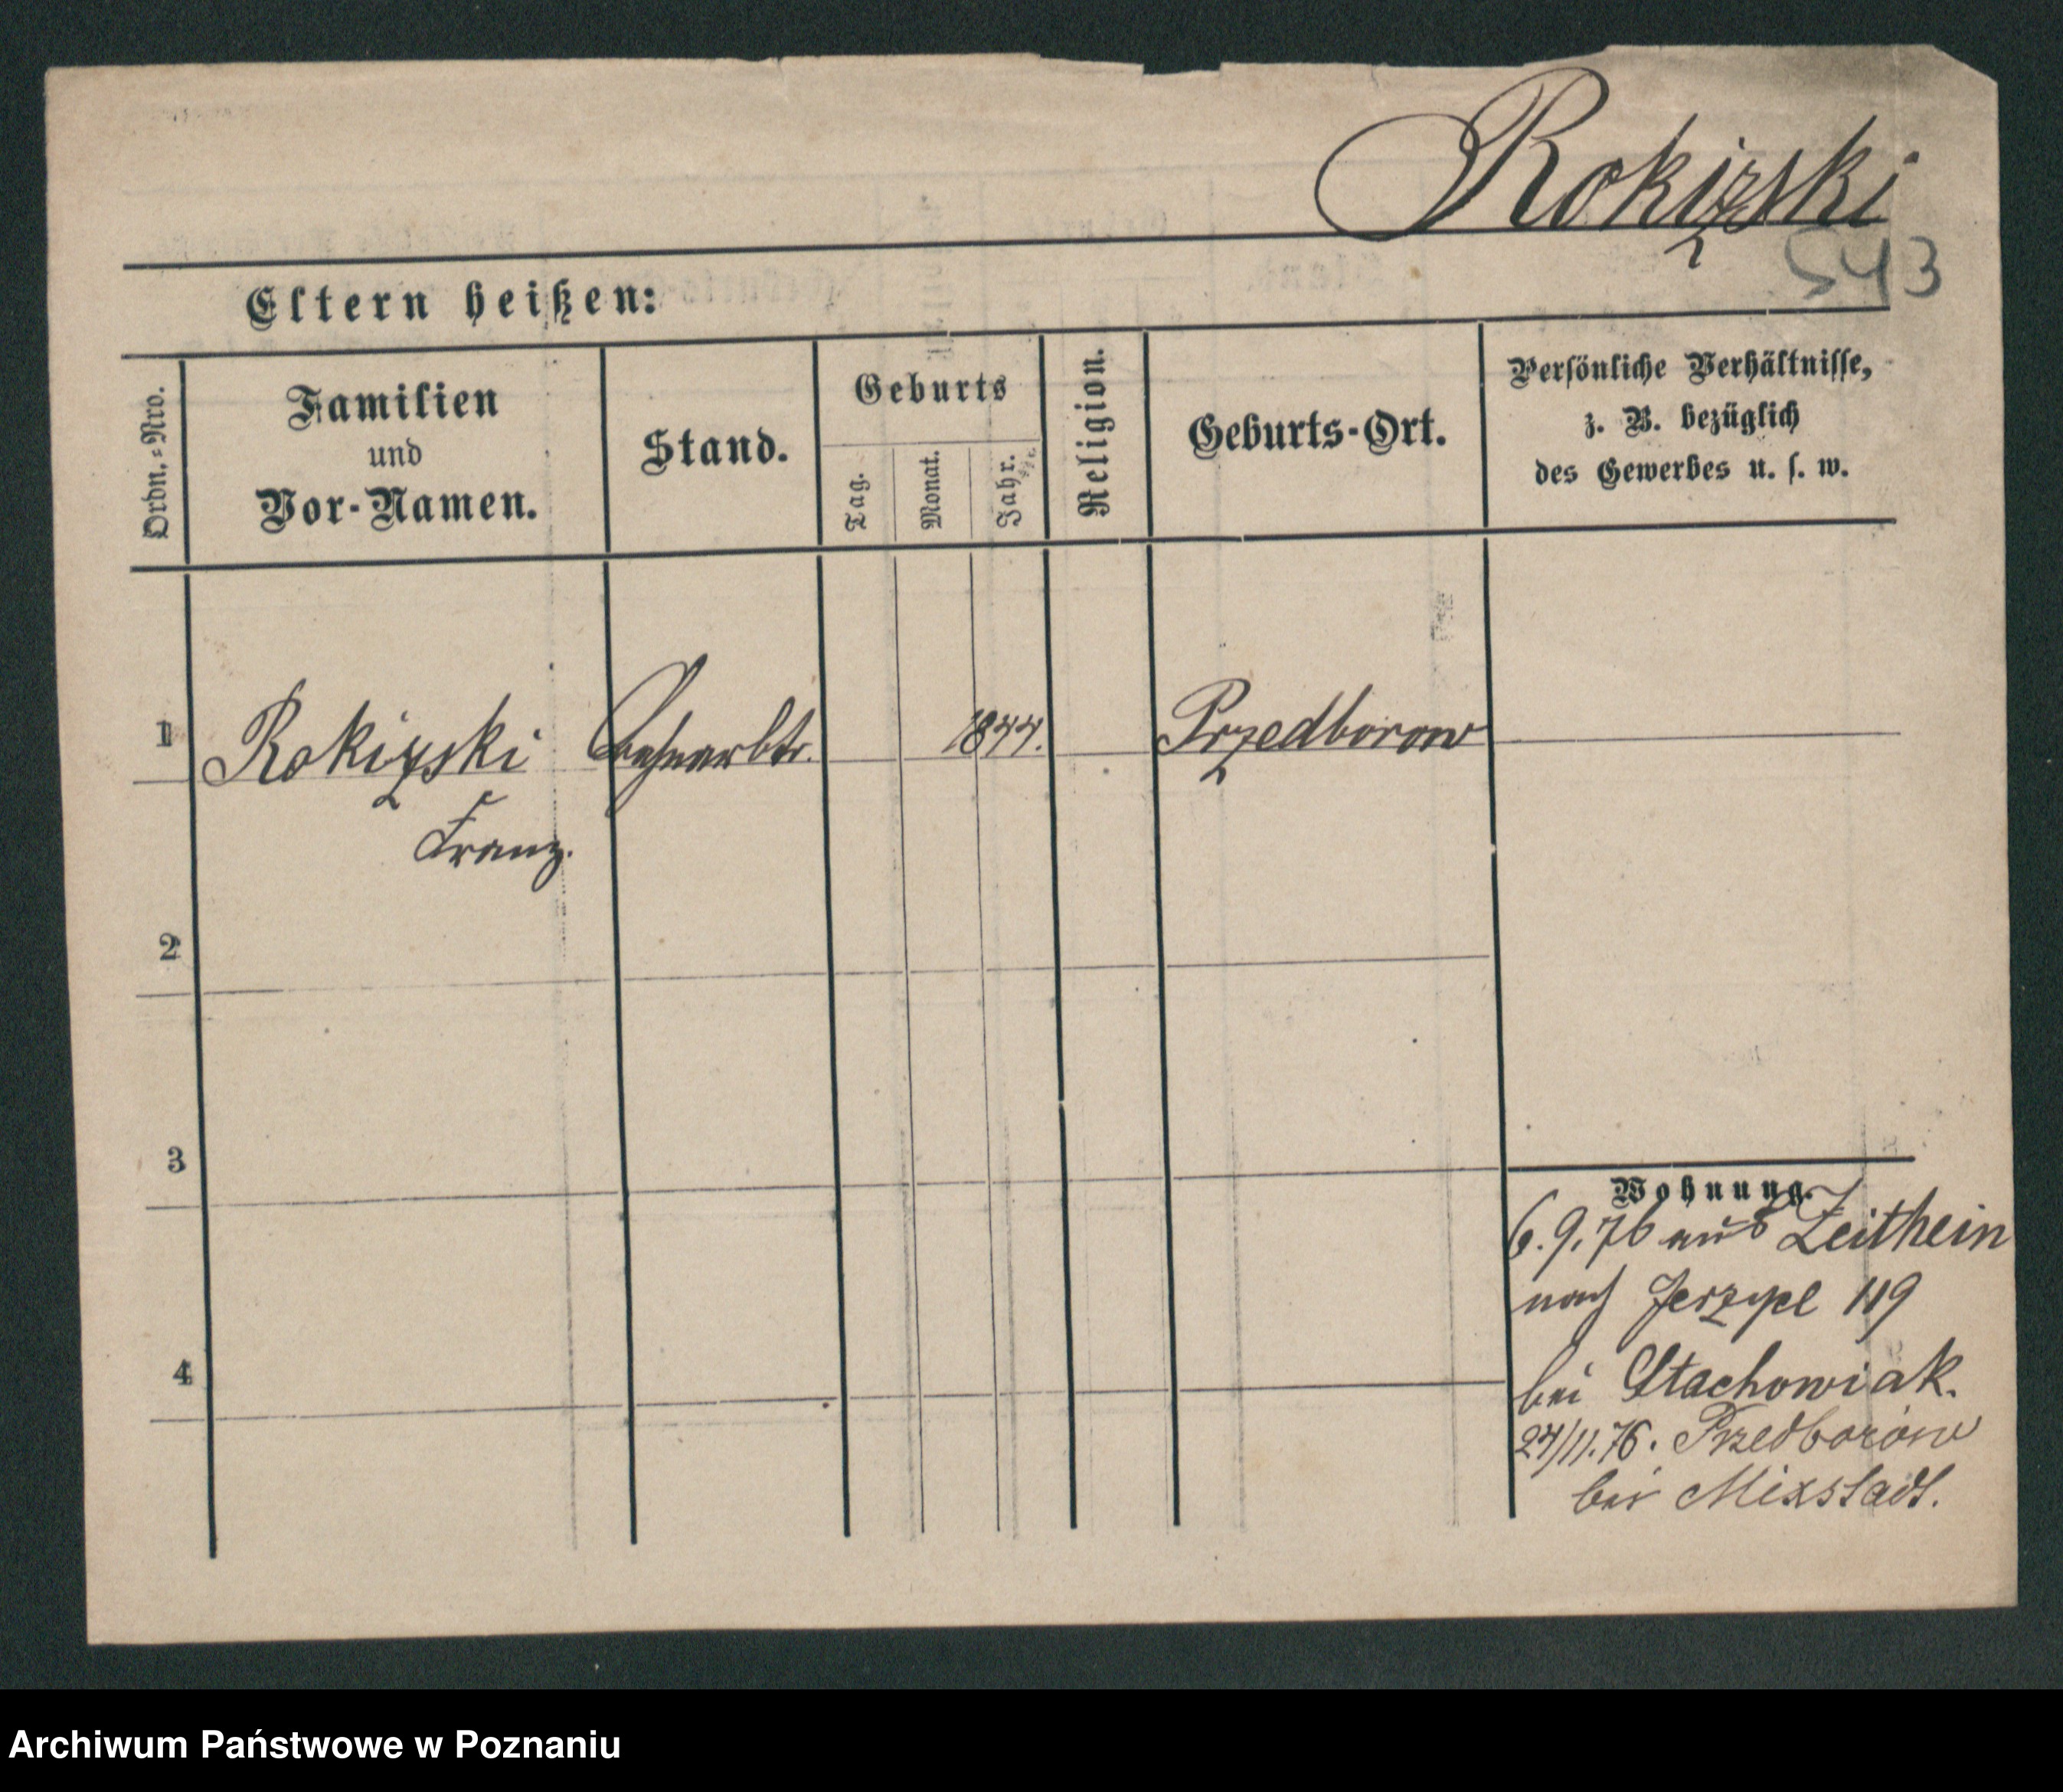 Rokizski
543
Eltern heißen:
Ordn.=Nro.
Familien
und
Vor-Namen.
Stand.
Geburts
Tag.
Monat.
Jahr.
Religion.
Geburts-Ort.
Persönliche Verhältnisse,
z. B. bezüglich
des Gewerbes u. s. w.
1
Rokizski
Franz.
Bahnarbtr.
1844.
Przedborow
2
3
4
Wohnung.
6.9.76 aus Zeithein
nach Jerzyce 119
bei Stachowiak.
24/11.76. Przedborow
bei Mixstadt.
Archiwum Państwowe w Poznaniu